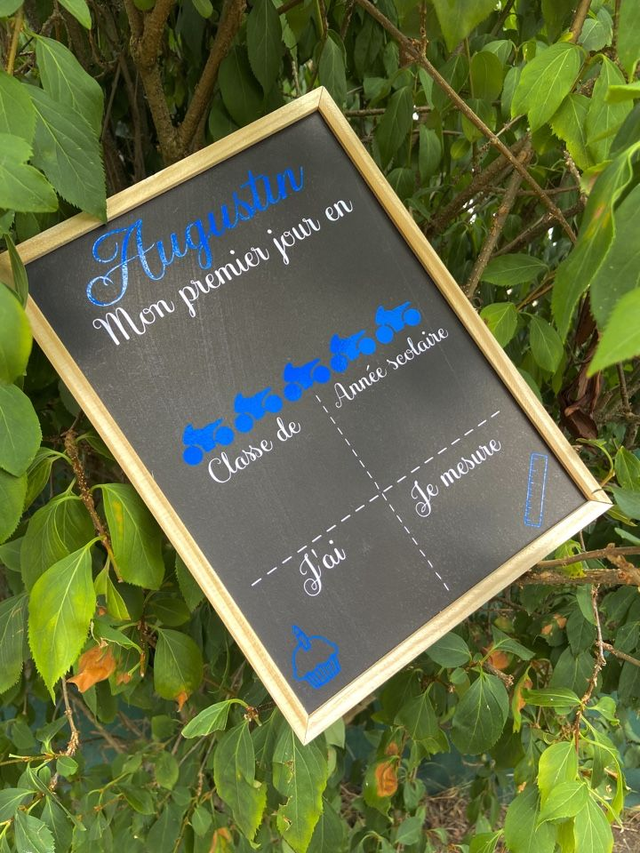 Augustin
Mon premier jour en
Classe de
Année scolaire
J'ai
Je mesure